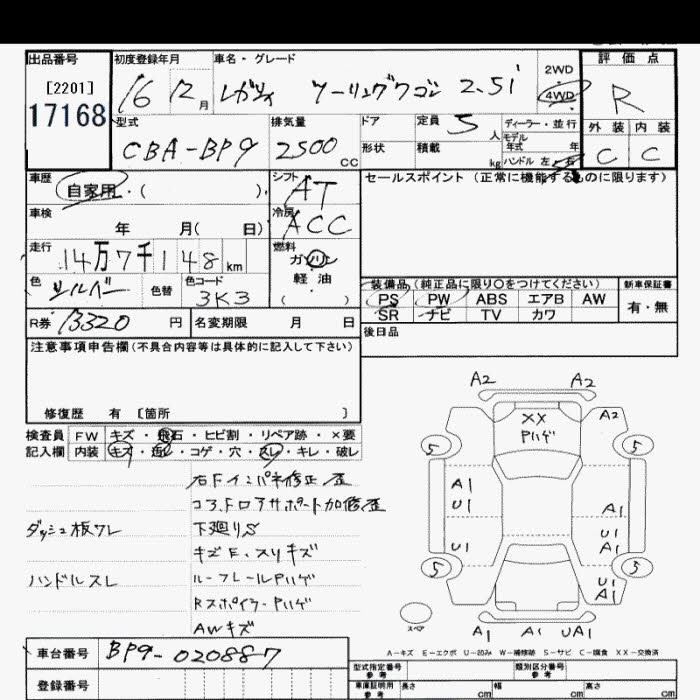 出品番号 初度登録年月 車名・グレード 2WD 評価点
[2201] 16 12月 レガシィ ツーリングワゴン 2.5i 4WD R
17168
型式 排気量 ドア 定員 5人 ディーラー・並行 外装 内装
CBA-BP9 2500cc 形状 積載 kg モデル年式 年 C C
ハンドル 左・右
車歴 自家用・( ) シフト AT セールスポイント (正常に機能するものに限ります)
車検 年 月( 日) 冷房 ACC
走行 14万7千148km 燃料 ガソリン
軽油
( )
色 シルバー 色替 色コード 3K3
装備品 (純正品に限り○をつけてください) 新車保証書
PS PW ABS エアB AW 有・無
SR ナビ TV カワ
R券 13320円 名変期限 月 日 後日品
注意事項申告欄 (不具合内容等は具体的に記入して下さい)
修復歴 有 [箇所 ]
検査員 FW キズ・飛石・ヒビ割・リペア跡・×要
記入欄 内装 キズ・ ・コゲ・穴・スレ・キレ・破レ
右Fインパネ修正 歪
コアF ロアサポート 加修歪
ダッシュ板ワレ 下廻りS
キズE・スリキズ
ハンドルスレ ルーフレールPハゲ
RスポイラーPハゲ
AWキズ
A2 A2
XX
Pハゲ
A2
5 5
A1
U1
A1
U1
A1
U1
5 5
U1
A1
スペア
A1 A1 UA1
A-キズ E-エクボ U-凹み W-補修跡 S-サビ C-腐食 XX-交換済
車台番号 BP9-020887
登録番号
型式指定番号 参考 類別区分番号 参考
車庫証明用 参考 長さ cm 幅 cm 高さ cm